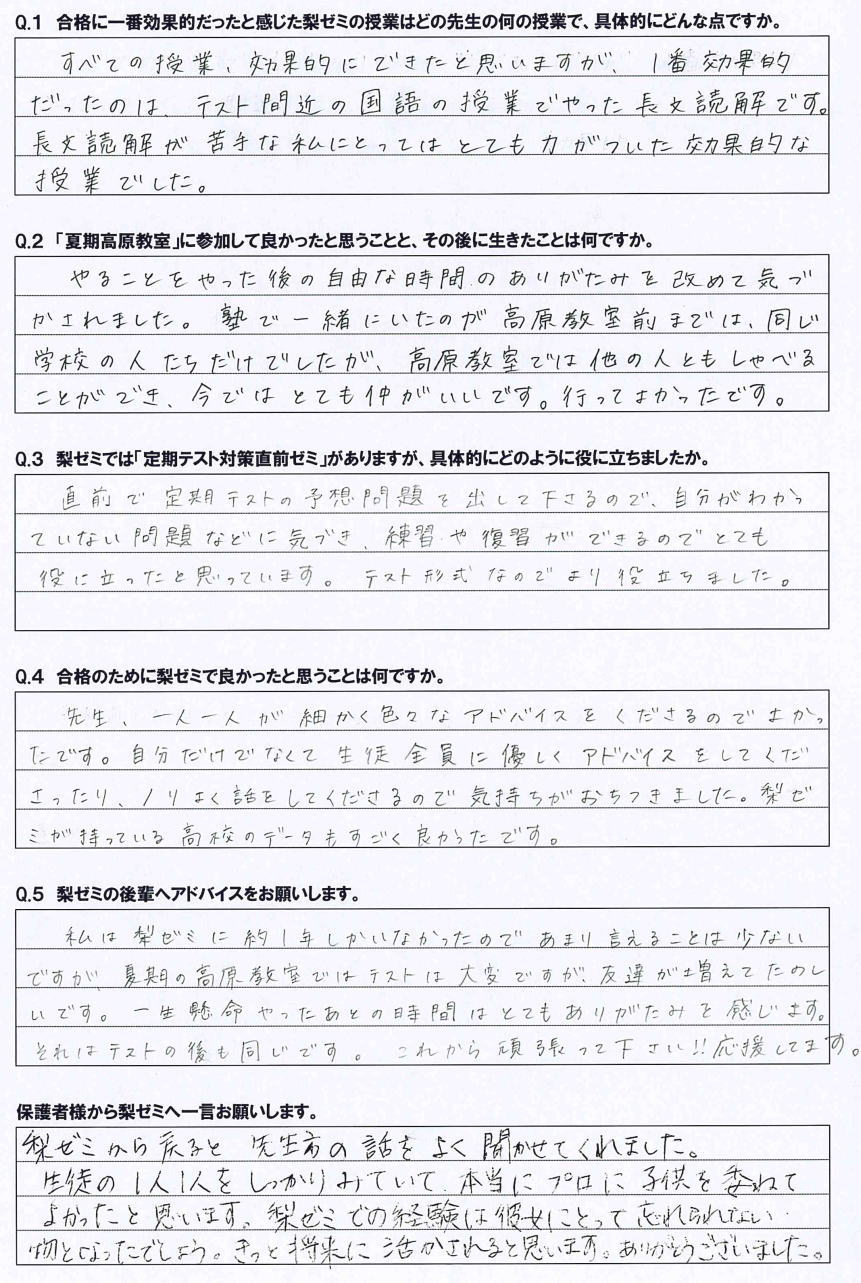 Q.1 合格に一番効果的だったと感じた梨ゼミの授業はどの先生の何の授業で、具体的にどんな点ですか。
すべての授業、効果的にできたと思いますが、1番効果的
だったのは、テスト間近の国語の授業でやった長文読解です。
長文読解が苦手な私にとってはとても力がついた効果的な
授業でした。
Q.2 「夏期高原教室」に参加して良かったと思うことと、その後に生きたことは何ですか。
やることをやった後の自由な時間のありがたみを改めて気づ
かされました。塾で一緒にいたのが高原教室前までは、同じ
学校の人たちだけでしたが、高原教室では他の人ともしゃべる
ことができ、今ではとても仲がいいです。行ってよかったです。
Q.3 梨ゼミでは「定期テスト対策直前ゼミ」がありますが、具体的にどのように役に立ちましたか。
直前で定期テストの予想問題を出して下さるので、自分がわかっ
ていない問題などに気づき、練習や復習ができるのでとても
役に立ったと思っています。テスト形式なのでより役立ちました。
Q.4 合格のために梨ゼミで良かったと思うことは何ですか。
先生、一人一人が細かく色々なアドバイスをくださるのでよかっ
たです。自分だけでなくて生徒全員に優しくアドバイスをしてくだ
さったり、ノリよく話をしてくださるので気持ちがおちつきました。梨ゼ
ミが持っている高校のデータもすごく良かったです。
Q.5 梨ゼミの後輩へアドバイスをお願いします。
私は梨ゼミに約1年しかいなかったのであまり言えることは少ない
ですが、夏期の高原教室ではテストは大変ですが、友達が増えてたのし
いです。一生懸命やったあとの時間はとてもありがたみを感じます。
それはテストの後も同じです。これから頑張って下さい!!応援してます。
保護者様から梨ゼミへ一言お願いします。
梨ゼミから戻ると先生方の話をよく聞かせてくれました。
生徒の1人1人をしっかりみていて、本当にプロに子供を委ねて
よかったと思います。梨ゼミでの経験は彼女にとって忘れられない
物となったでしょう。きっと将来に活かされると思います。ありがとうございました。